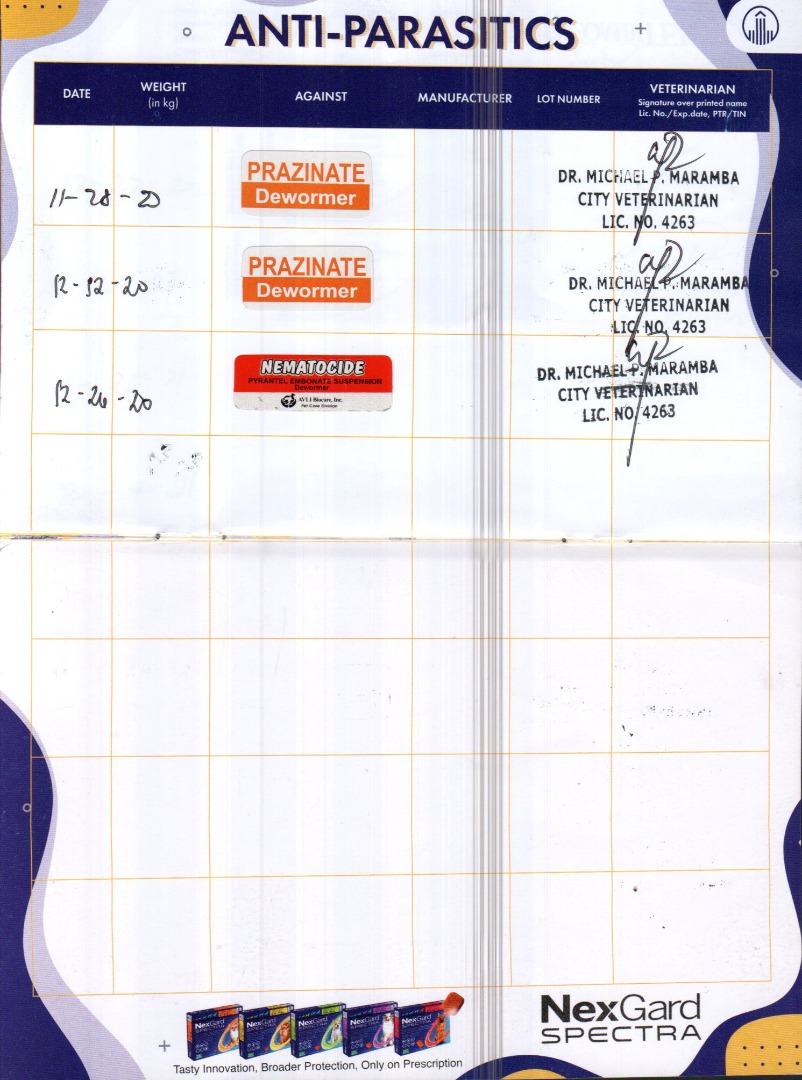 ANTI-PARASITICS
DATE
WEIGHT
(in kg)
AGAINST
MANUFACTURER
LOT NUMBER
VETERINARIAN
Signature over printed name
Lic. No./Exp.date, PTR/TIN
11-28-20
PRAZINATE
Dewormer
DR. MICHAEL P. MARAMBA
CITY VETERINARIAN
LIC. NO. 4263
12-12-20
PRAZINATE
Dewormer
DR. MICHAEL P. MARAMBA
CITY VETERINARIAN
LIC. NO. 4263
12-26-20
NEMATOCIDE
PYRANTEL EMBONATE SUSPENSION
Dewormer
AVLI Biocare, Inc.
Pet Care Division
DR. MICHAEL P. MARAMBA
CITY VETERINARIAN
LIC. NO. 4263
NexGard
NexGard
NexGard
NexGard
NexGard
Tasty Innovation, Broader Protection, Only on Prescription
NexGard
SPECTRA